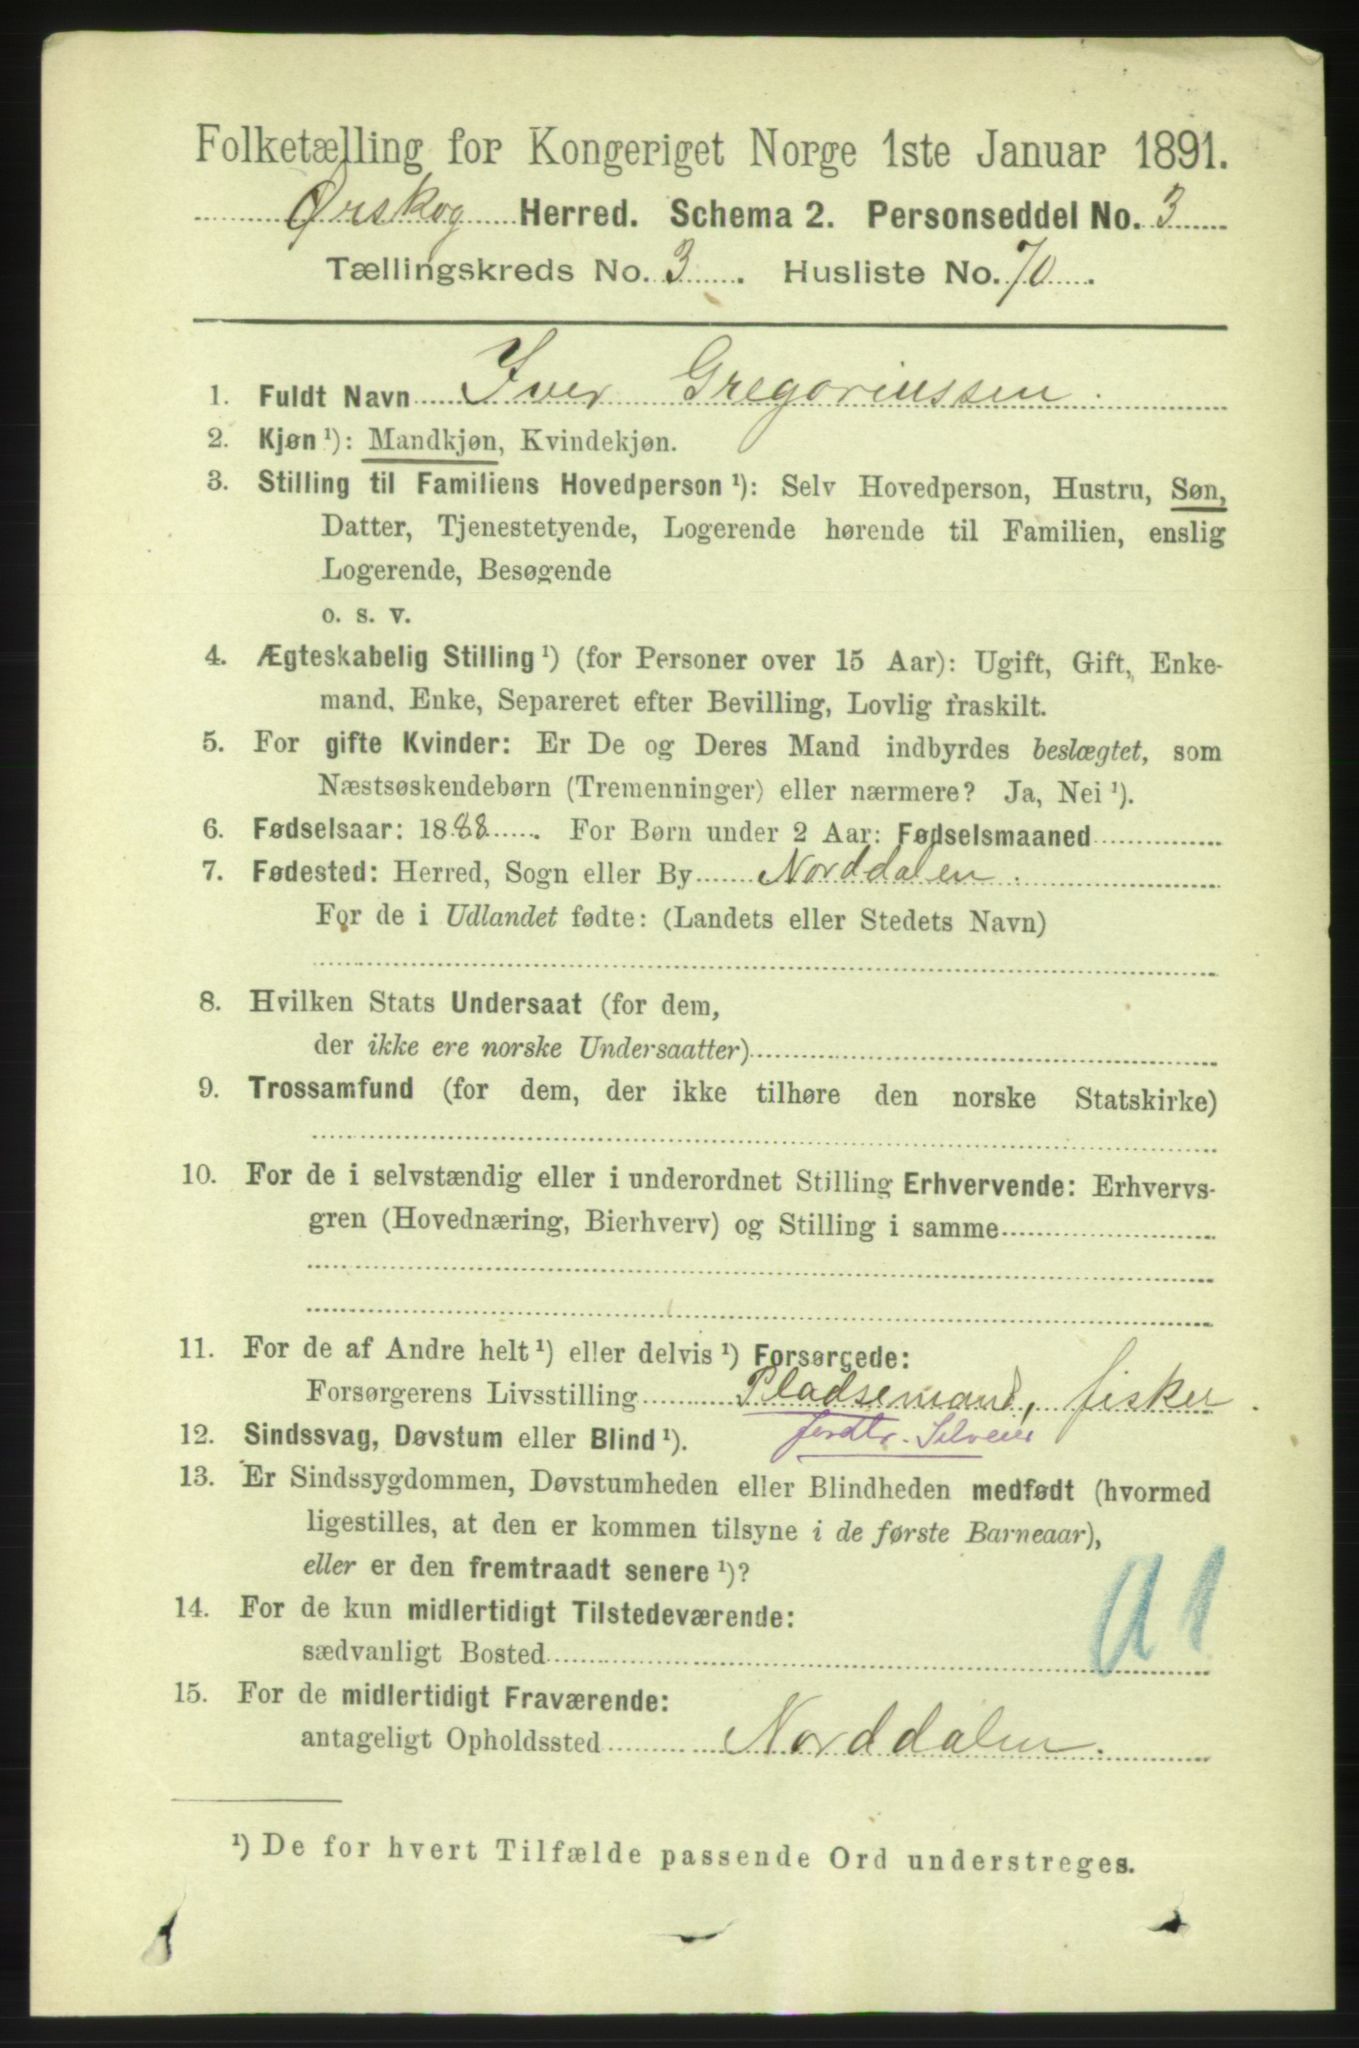 Folketælling for Kongeriget Norge 1ste Januar 1891.
Ørskog Herred. Schema 2. Personseddel No. 3
Tællingskreds No. 3. Husliste No. 70.
1. Fuldt Navn Iver Gregoriussen.
2. Kjøn ¹): Mandkjøn, Kvindekjøn.
3. Stilling til Familiens Hovedperson ¹): Selv Hovedperson, Hustru, Søn,
Datter, Tjenestetyende, Logerende hørende til Familien, enslig
Logerende, Besøgende
o. s. v.
4. Ægteskabelig Stilling ¹) (for Personer over 15 Aar): Ugift, Gift, Enke-
mand, Enke, Separeret efter Bevilling, Lovlig fraskilt.
5. For gifte Kvinder: Er De og Deres Mand indbyrdes beslægtet, som
Næstsøskendebørn (Tremenninger) eller nærmere? Ja, Nei ¹).
6. Fødselsaar: 1888. For Børn under 2 Aar: Fødselsmaaned
7. Fødested: Herred, Sogn eller By Norddalen.
For de i Udlandet fødte: (Landets eller Stedets Navn)
8. Hvilken Stats Undersaat (for dem,
der ikke ere norske Undersaatter)
9. Trossamfund (for dem, der ikke tilhøre den norske Statskirke)
10. For de i selvstændig eller i underordnet Stilling Erhvervende: Erhvervs-
gren (Hovednæring, Bierhverv) og Stilling i samme
11. For de af Andre helt ¹) eller delvis ¹) Forsørgede:
Forsørgerens Livsstilling Pladsemand, fisker.
Jordbr. Selveier
12. Sindssvag, Døvstum eller Blind ¹).
13. Er Sindssygdommen, Døvstumheden eller Blindheden medfødt (hvormed
ligestilles, at den er kommen tilsyne i de første Barneaar),
eller er den fremtraadt senere ¹)?
14. For de kun midlertidigt Tilstedeværende:
sædvanligt Bosted
a 1
15. For de midlertidigt Fraværende:
antageligt Opholdssted Norddalen.
¹) De for hvert Tilfælde passende Ord understreges.